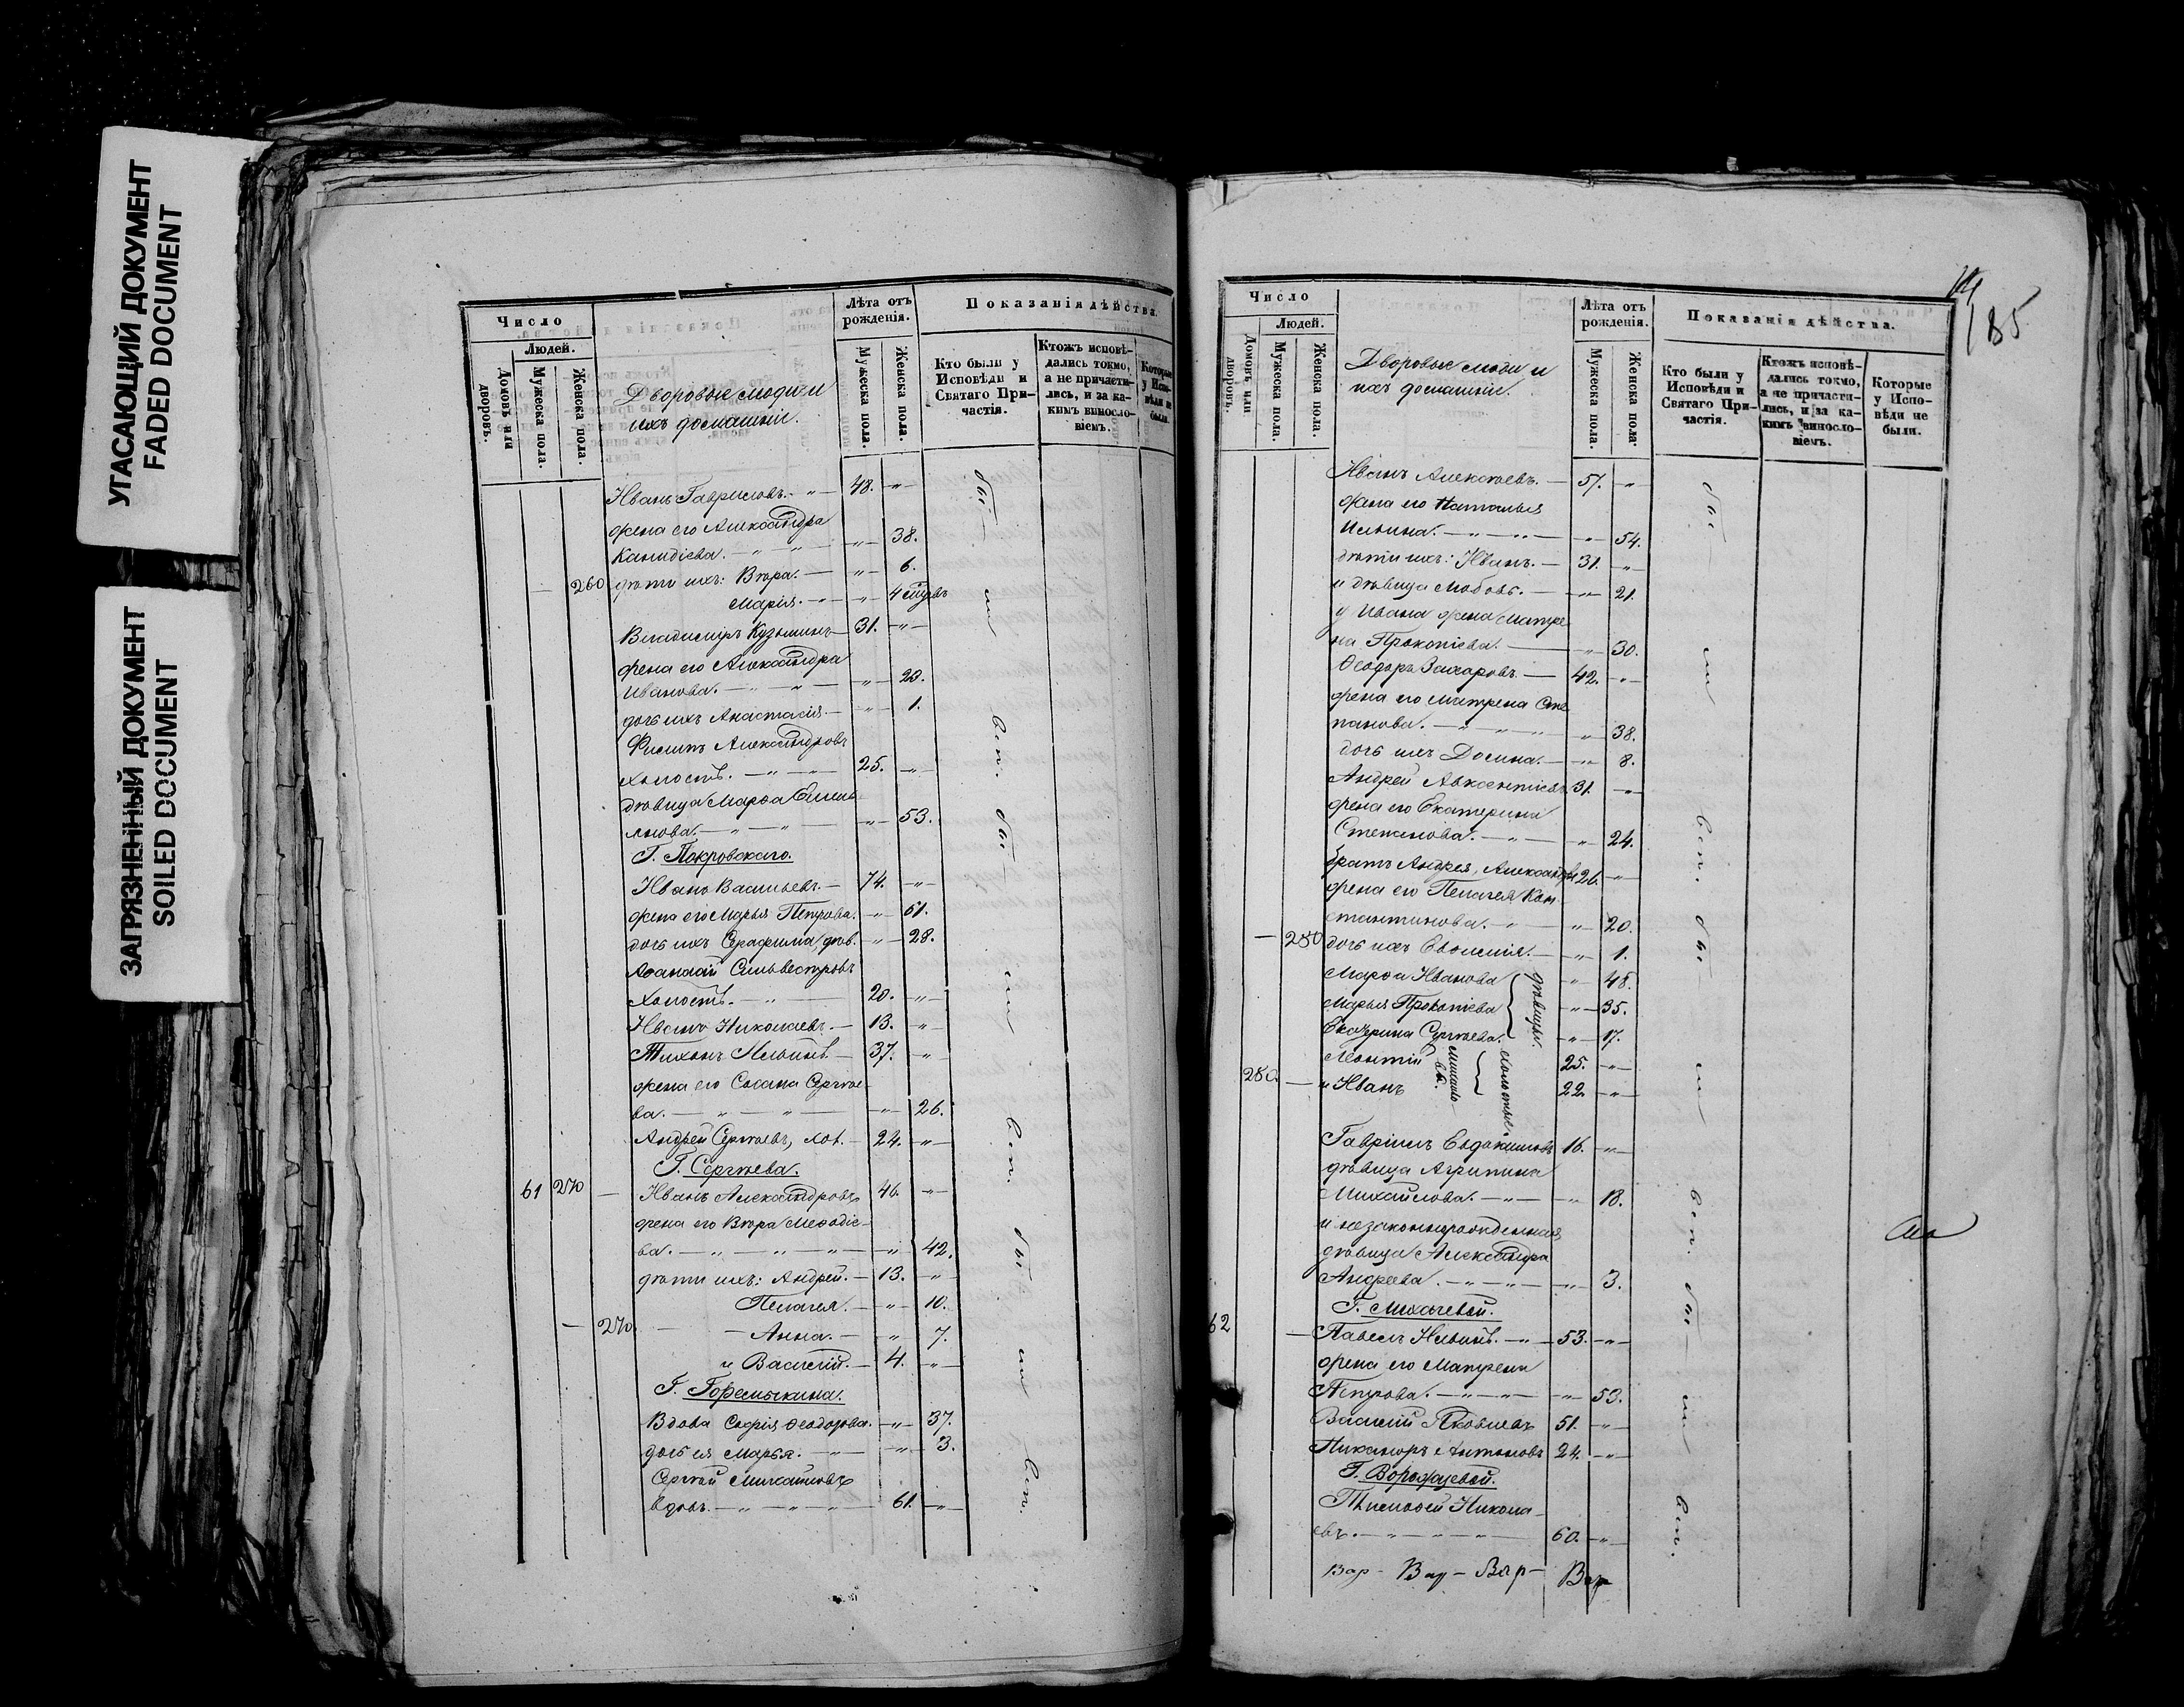 УГАСАЮЩИЙ ДОКУМЕНТ
FADED DOCUMENT
ЗАГРЯЗНЕННЫЙ ДОКУМЕНТ
SOILED DOCUMENT
Число
Людей.
Домовъ или дворовъ.
Мужеска пола.
Женска пола.
Дворовые люди и
ихъ домашніе.
Лѣта отъ
рожденія.
Мужеска пола.
Женска пола.
Показанія дѣйства.
Кто были у
Исповѣди и
Святаго При-
частія.
Ктожъ исповѣ-
дались токмо,
а не причасти-
лись, и за ка-
кимъ винослo-
віемъ.
Которые
у Испо-
вѣди не
были.
Иванъ Гавриловъ. 48.
жена его Александра
38.
260 дѣти ихъ: Вѣра. 6.
Марія. 4
Владиміръ Кузьминъ 31.
жена его Александра
Иванова. 20.
дочь ихъ Анастасія. 1.
Филипъ Александровъ
холостъ. 25.
дѣвица Марѳа Емель-
янова. 53.
Г. Покровскаго.
Иванъ Васильевъ. 74.
жена его Марья Петрова. 61.
дочь ихъ Серафима, дѣв. 28.
Аѳанасій Сильвестровъ
холостъ. 20.
Иванъ Николаевъ. 13.
Тихонъ Ильинъ 37.
жена его Сосана Сергѣе-
ва. 26.
Андрей Сергѣевъ, хол. 24.
Г. Сергѣева.
61 270 Иванъ Александровъ 46.
жена его Вѣра Меѳодіе-
ва. 42.
дѣти ихъ: Андрей. 13.
Пелагея. 10.
270 Анна. 7.
и Василій. 4.
Г. Горемыкина.
Вдова Софія Ѳеодорова. 37.
дочь ея Марья. 3.
Сергѣй Михайловъ
вдовъ. 61.
бы ли въ исп. бы ли въ исп. бы ли въ исп.
185
Число
Людей.
Домовъ или дворовъ.
Мужеска пола.
Женска пола.
Дворовые люди и
ихъ домашніе.
Лѣта отъ
рожденія.
Мужеска пола.
Женска пола.
Показанія дѣйства.
Кто были у
Исповѣди и
Святаго При-
частія.
Ктожъ исповѣ-
дались токмо,
а не причасти-
лись, и за ка-
кимъ винослo-
віемъ.
Которые
у Испо-
вѣди не
были.
Иванъ Алексѣевъ. 57.
жена его Наталья
Ильина. 54.
дѣти ихъ: Иванъ. 31.
и дѣвица Любовь. 21.
у Ивана жена Матре
на Прокопіева. 30.
Ѳеодоръ Захаровъ 42.
жена его Матрена Сте
панова. 38.
дочь ихъ Домна. 8.
Андрей Авксентіевъ 31.
жена его Екатерина
Степанова. 24.
братъ Андрея, Александръ 26.
жена его Пелагея Кон-
стантинова. 20.
280 дочь ихъ Евѳимія. 1.
Марѳа Иванова 48.
Марья Прокопіева 35.
Екатерина Сергѣева. 17.
дѣвицы.
Леонтій 25.
280 и Иванъ 22.
холостые
Гавріилъ Евдокимовъ 16.
дѣвица Агрипина
Михайлова. 18.
и незаконнорожденная
дѣвица Александра
Андреева. 3.
Г. Лихачевой.
62 Павелъ Ильинъ. 53.
жена его Матрена
Петрова. 53.
Василій Яковлевъ 51.
Никаноръ Антоновъ 24.
Г. Ворожцевой.
Тимоѳей Никола-
евъ. 60.
Вар- Вар- Вар- Вар